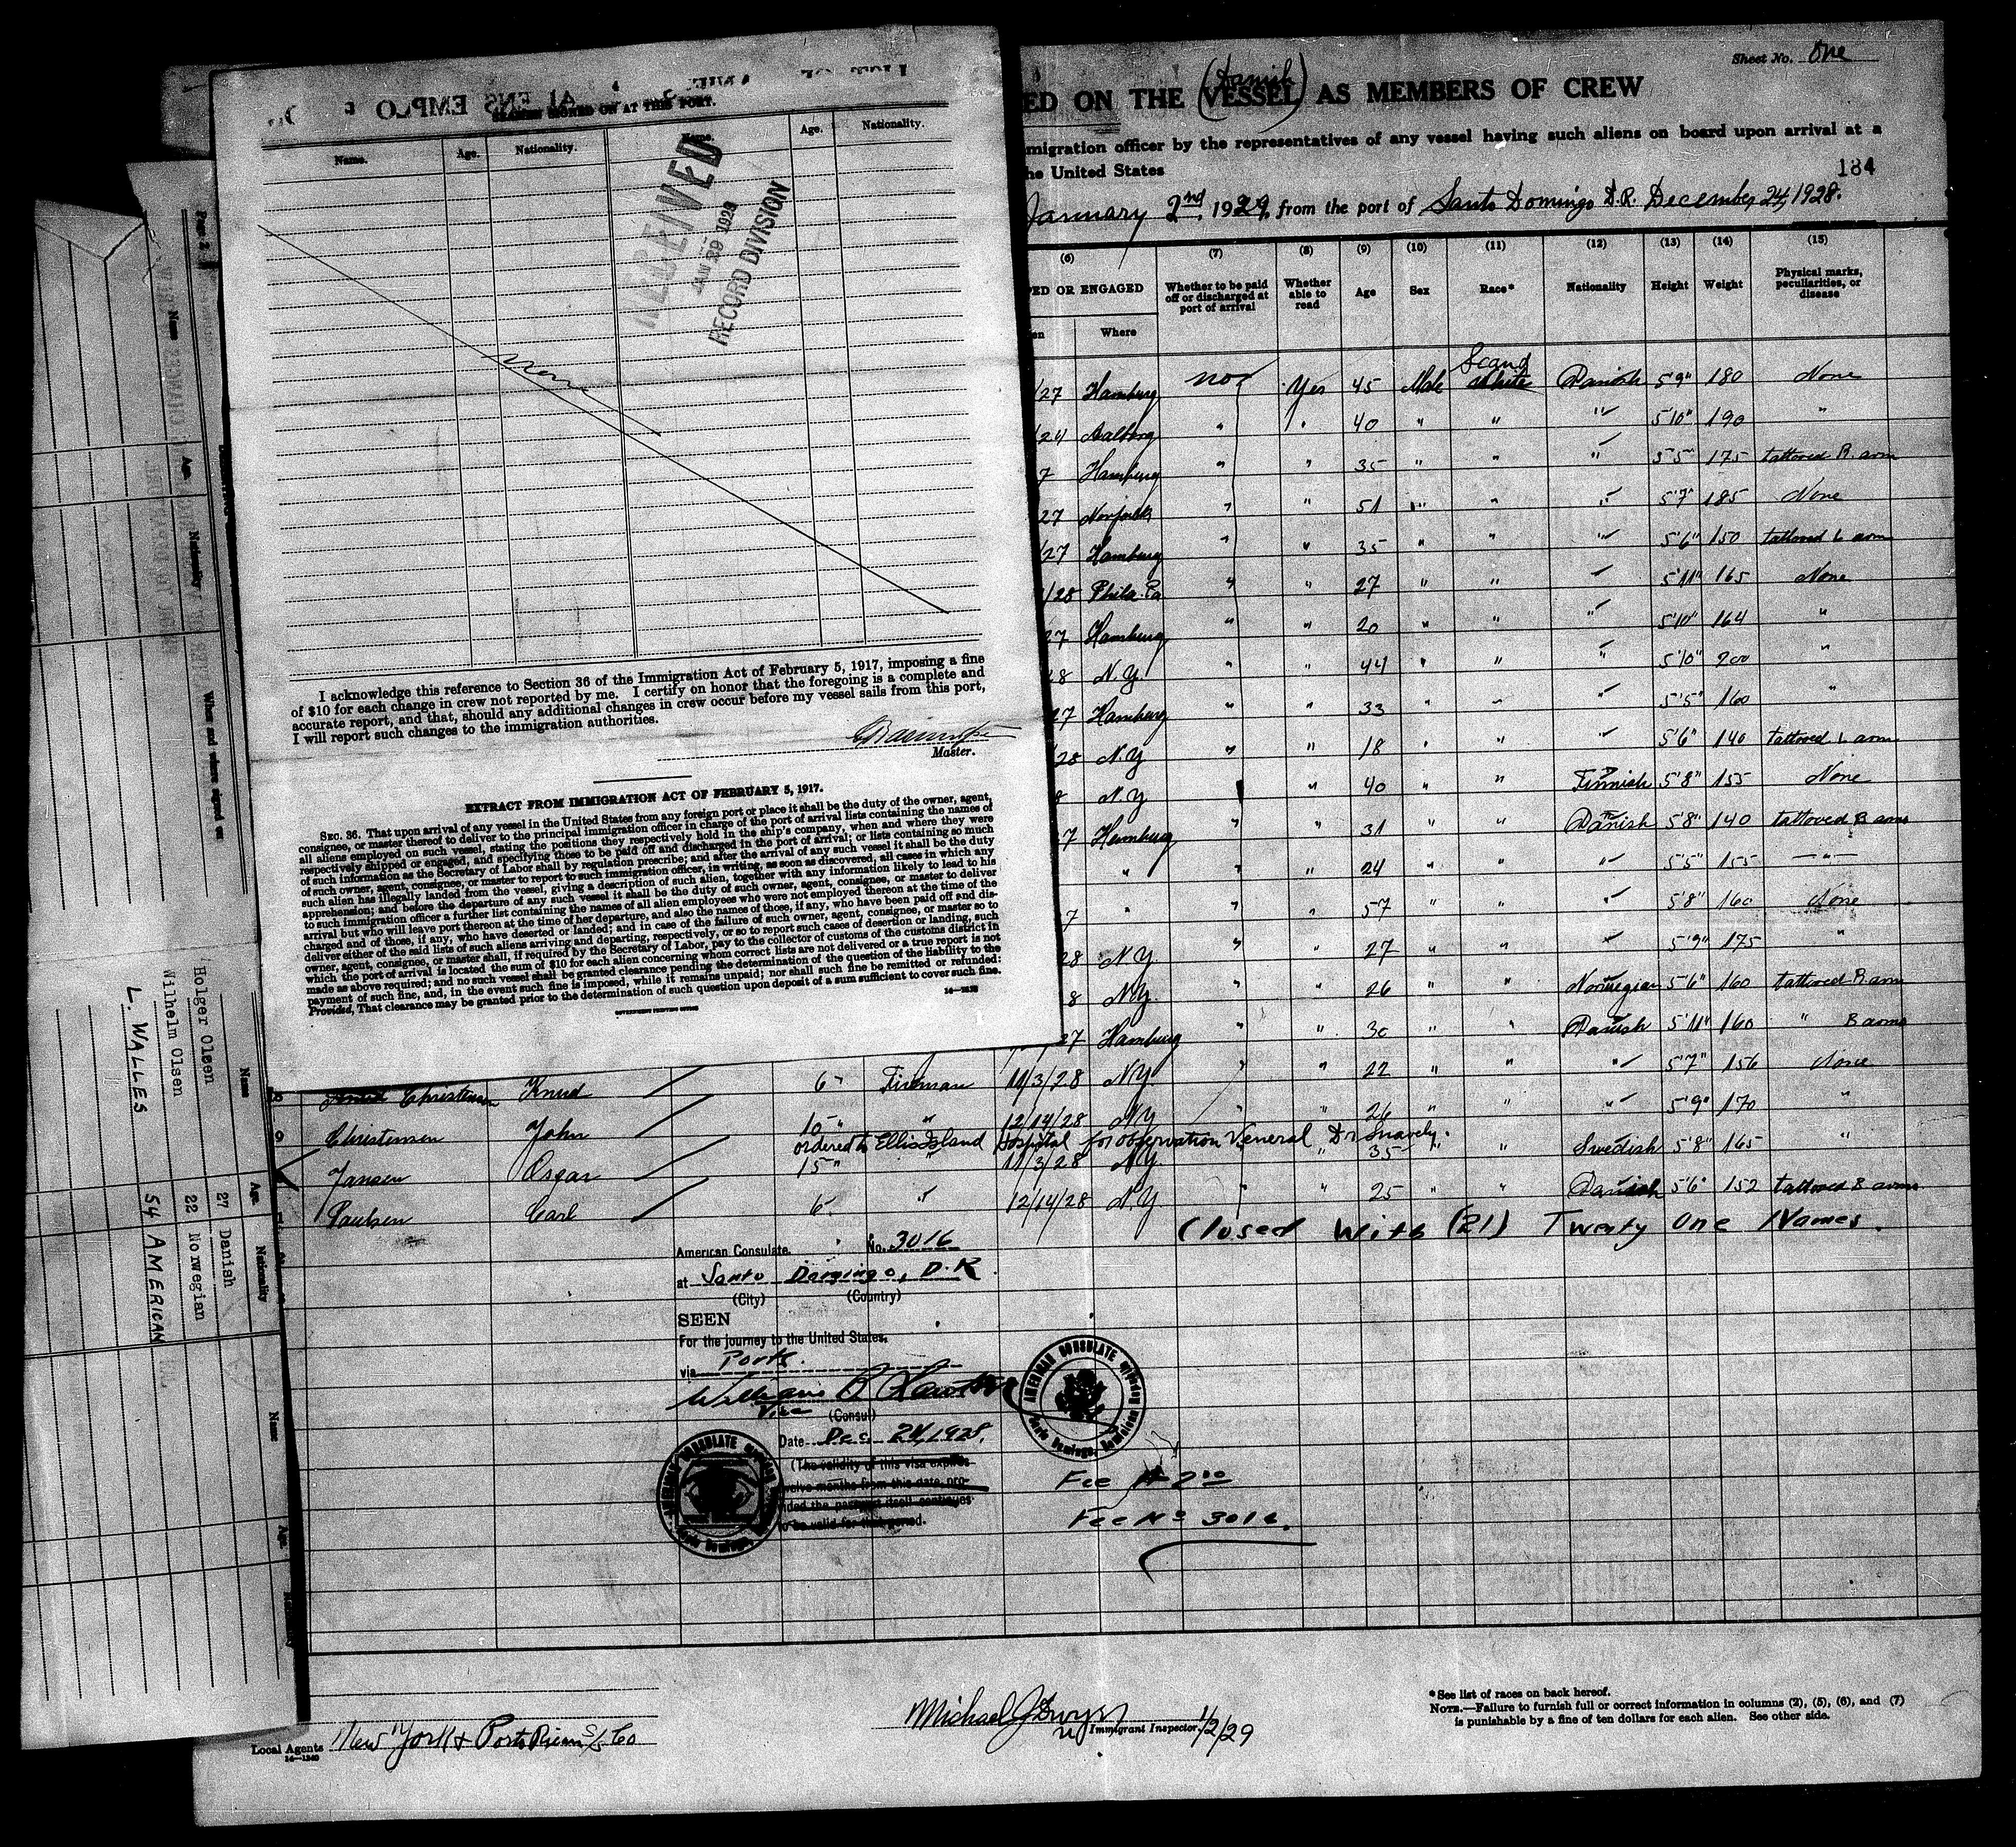 Sheet No. One
ED ON THE (VESSEL) AS MEMBERS OF CREW
(Danish)
migration officer by the representatives of any vessel having such aliens on board upon arrival at a
he United States
184
January 2nd 1929, from the port of Santo Domingo D.R. December 24, 1928.
SEAMEN SIGNED ON AT THIS PORT.
Name. Age. Nationality. Name. Age. Nationality.
RECEIVED
JAN 29 1929
RECORD DIVISION
None
I acknowledge this reference to Section 36 of the Immigration Act of February 5, 1917, imposing a fine
of $10 for each change in crew not reported by me. I certify on honor that the foregoing is a complete and
accurate report, and that, should any additional changes in crew occur before my vessel sails from this port,
I will report such changes to the immigration authorities.
Master.
EXTRACT FROM IMMIGRATION ACT OF FEBRUARY 5, 1917.
SEC. 36. That upon arrival of any vessel in the United States from any foreign port or place it shall be the duty of the owner, agent,
consignee, or master thereof to deliver to the principal immigration officer in charge of the port of arrival lists containing the names of
all aliens employed on such vessel, stating the positions they respectively hold in the ship's company, when and where they were
respectively shipped or engaged, and specifying those to be paid off and discharged in the port of arrival; or lists containing so much
of such information as the Secretary of Labor shall by regulation prescribe; and after the arrival of any such vessel it shall be the duty
of such owner, agent, consignee, or master to report to such immigration officer, in writing, as soon as discovered, all cases in which any
such alien has illegally landed from the vessel, giving a description of such alien, together with any information likely to lead to his
apprehension; and before the departure of any such vessel it shall be the duty of such owner, agent, consignee, or master to deliver
to such immigration officer a further list containing the names of all alien employees who were not employed thereon at the time of the
arrival but who will leave port thereon at the time of her departure, and also the names of those, if any, who have been paid off and dis-
charged and of those, if any, who have deserted or landed; and in case of the failure of such owner, agent, consignee, or master so to
deliver either of the said lists of such aliens arriving and departing, respectively, or so to report such cases of desertion or landing, such
owner, agent, consignee, or master shall, if required by the Secretary of Labor, pay to the collector of customs of the customs district in
which the port of arrival is located the sum of $10 for each alien concerning whom correct lists are not delivered or a true report is not
made as above required; and no such vessel shall be granted clearance pending the determination of the question of the liability to the
payment of such fine, and, in the event such fine is imposed, while it remains unpaid; nor shall such fine be remitted or refunded:
Provided, That clearance may be granted prior to the determination of such question upon deposit of a sum sufficient to cover such fine.
GOVERNMENT PRINTING OFFICE
(6) (7) (8) (9) (10) (11) (12) (13) (14) (15)
ED OR ENGAGED Whether to be paid off or discharged at port of arrival Whether able to read Age Sex Race* Nationality Height Weight Physical marks, peculiarities, or disease
en Where
Scand
/27 Hamburg no Yes 45 Male White Danish 5'9" 180 None
/24 Aalborg " " 40 " " " 5'10" 190 "
7 Hamburg " " 35 " " " 5'5" 175 tattooed R. arm
27 Norfolk " " 51 " " " 5'7" 185 None
/27 Hamburg " " 35 " " " 5'6" 150 tattooed L arm
/28 Phila. Pa " " 27 " " 5'11" 165 None
27 Hamburg " " 20 " " " 5'10" 164 "
8 N.Y. " " 44 " " " 5'10" 200 "
27 Hamburg " " 33 " " " 5'5" 160 "
/28 N.Y " " 18 " " " 5'6" 140 tattooed L arm
8 N.Y " 40 " " Finnish 5'8" 155 None
7 Hamburg " " 31 " " Danish 5'8" 140 tattooed B arms
" " " 24 " " " 5'5" 155 — " —
7 " " " 57 " " " 5'8" 160 None
28 N.Y " " 27 " " " 5'9" 175 "
8 N.Y. " " 26 " " Norwegian 5'6" 160 tattooed R. arm
27 Hamburg " " 30 " " Danish 5'11" 160 " B arms
8 Christensen Knud 6" Fireman 11/3/28 N.Y. " " 22 " " " 5'7" 156 None
9 Christensen John 10" " 12/14/28 N.Y " " 26 " " " 5'9" 170 "
ordered to Ellis Island Hospital for observation Veneral Dr Snavely.
Jansen Oscar 15" " 11/3/28 N.Y. " " 35 " " Swedish 5'8" 165 "
Paulsen Carl 6" " 12/14/28 N.Y " " 25 " " Danish 5'6" 152 tattooed B arms
Closed With (21) Twenty One Names.
American Consulate. No. 3016
at Santo Domingo, D.R
(City) (Country)
SEEN
For the journey to the United States.
via Ports.
Vice (Consul)
Date Dec. 24, 1928.
(The validity of this visa expires
twelve months from this date, pro-
vided the passport itself continues
to be valid for that period.
AMERICAN CONSULATE
Santo Domingo, Dominican Republic
Fee $2.00
Fee No 3016.
Local Agents New York & Porto Rican S/S Co
14—1240
Michael J Dwyer
Immigrant Inspector. 1/2/29
*See list of races on back hereof.
NOTE.—Failure to furnish full or correct information in columns (2), (5), (6), and (7)
is punishable by a fine of ten dollars for each alien. See other side.
Page 2
Name Age Nationality When and where signed on
Name Age Nationality
Holger Olsen 27 Danish
Wilhelm Olsen 22 Norwegian
L. WALLES 54 AMERICAN
Name Age